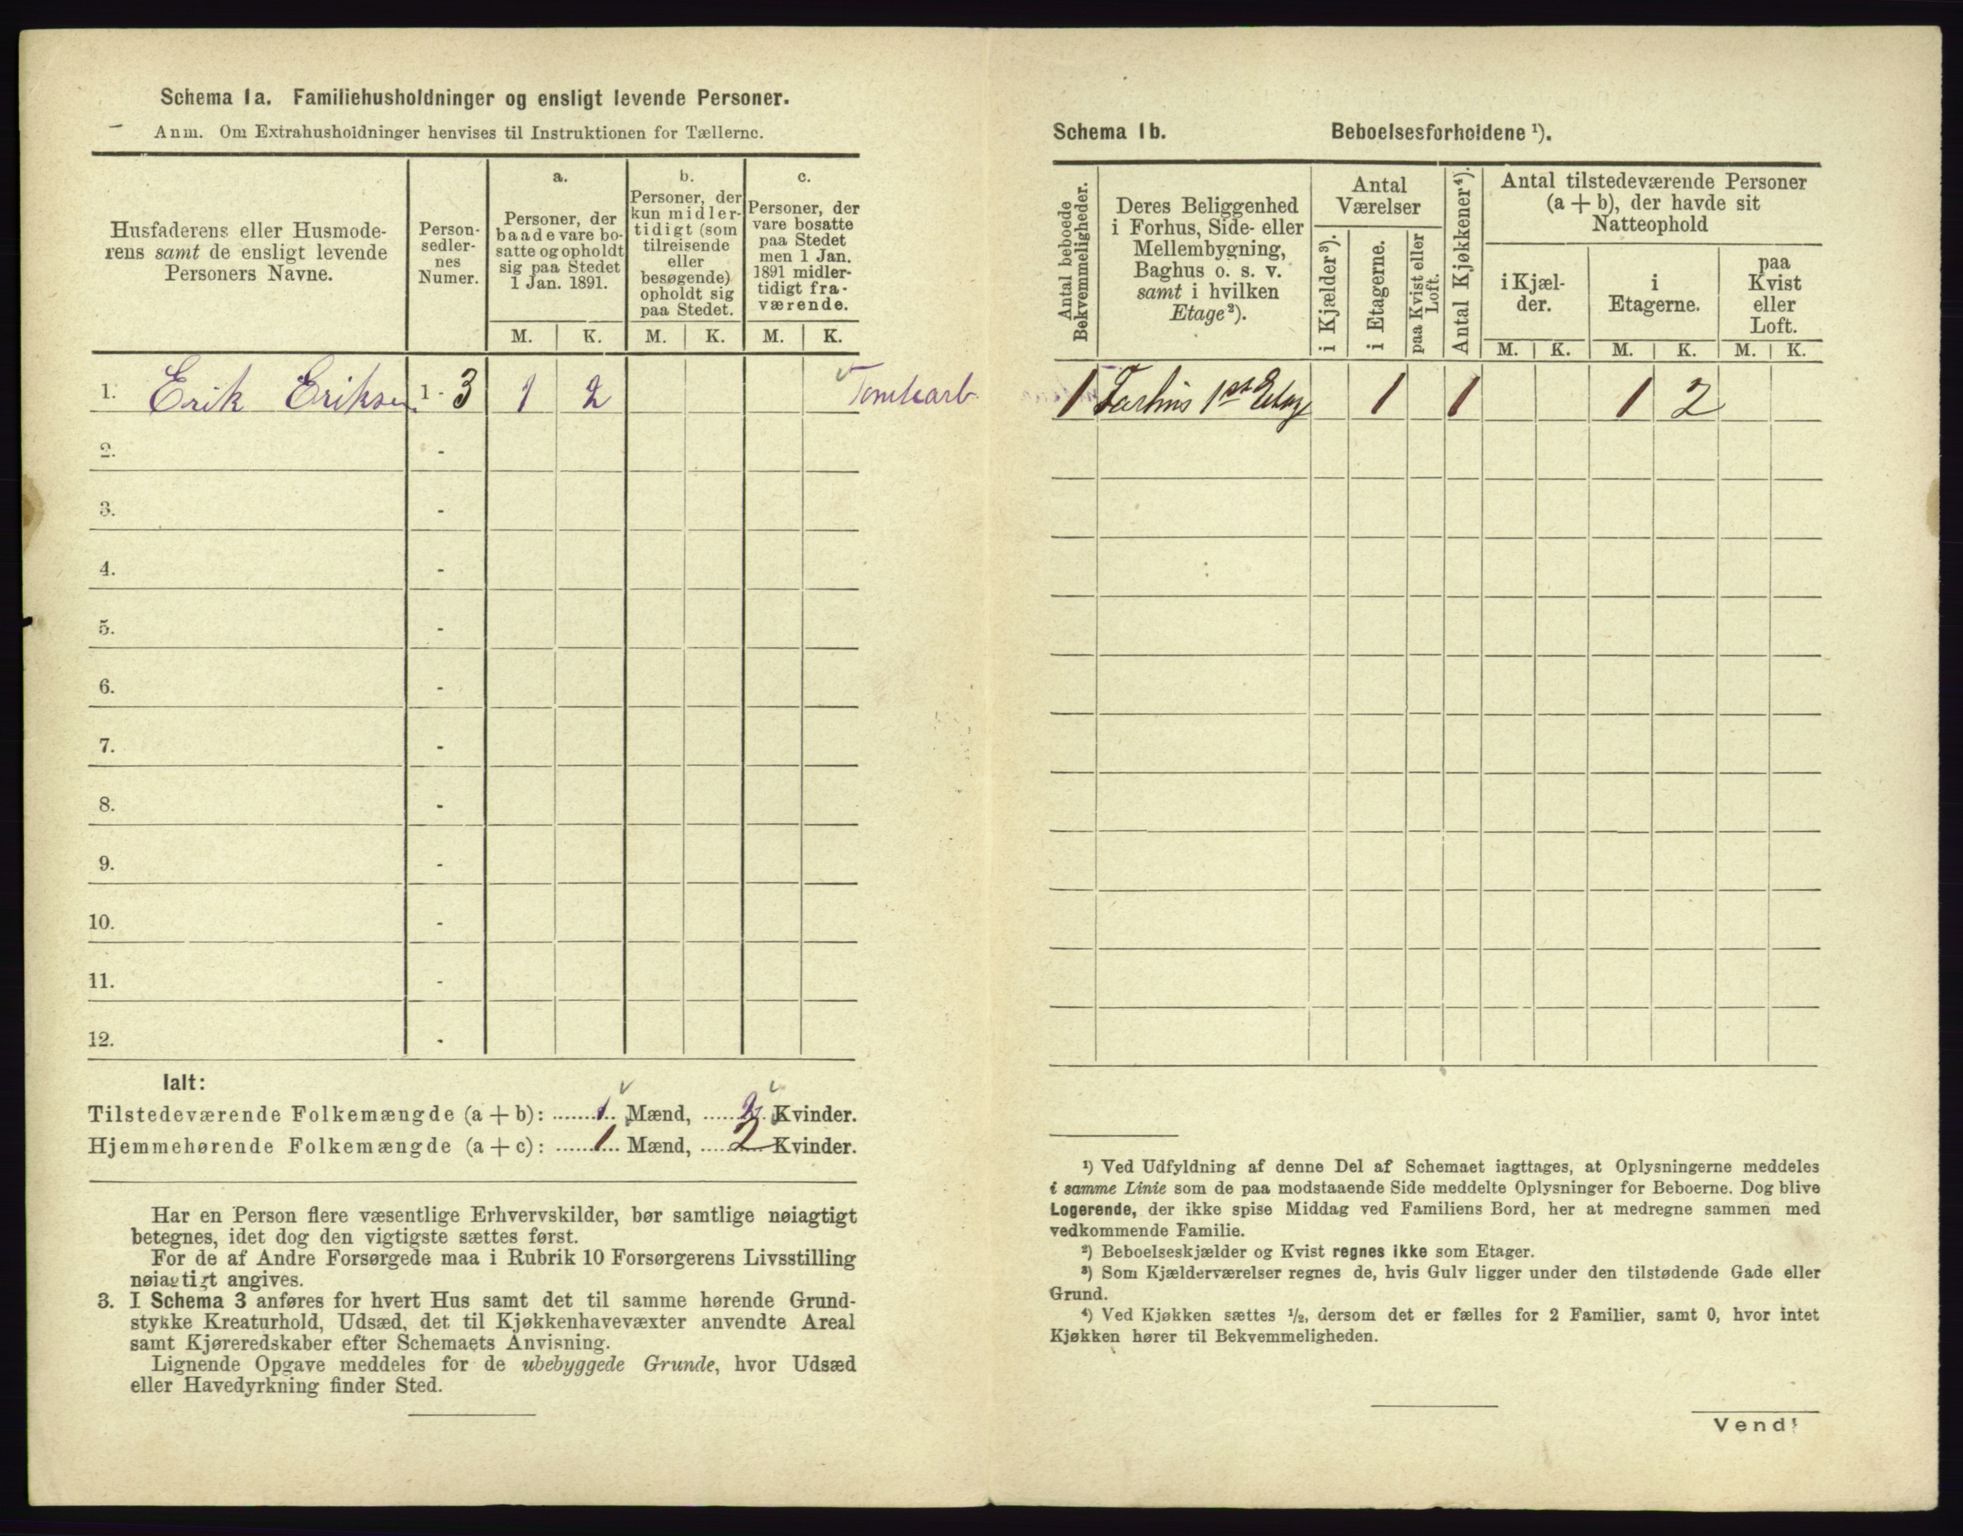 Schema 1a. Familiehusholdninger og ensligt levende Personer.
Anm. Om Extrahusholdninger henvises til Instruktionen for Tællerne.
Husfaderens eller Husmode-
rens samt de ensligt levende
Personers Navne.
Person-
sedler-
nes
Numer.
a.
Personer, der
baade vare bo-
satte og opholdt
sig paa Stedet
1 Jan. 1891.
b.
Personer, der
kun midler-
tidigt (som
tilreisende
eller
besøgende)
opholdt sig
paa Stedet.
c.
Personer, der
vare bosatte
paa Stedet
men 1 Jan.
1891 midler-
tidigt fra-
værende.
M. K. M. K. M. K.
1. Erik Eriksen 1 - 3 1 2
2. -
3. -
4. -
5. -
6. -
7. -
8. -
9. -
10. -
11. -
12. -
Ialt:
Tilstedeværende Folkemængde (a + b): 1 Mænd, 2 Kvinder.
Hjemmehørende Folkemængde (a + c): 1 Mænd, 2 Kvinder.
Har en Person flere væsentlige Erhvervskilder, bør samtlige nøiagtigt
betegnes, idet dog den vigtigste sættes først.
For de af Andre Forsørgede maa i Rubrik 10 Forsørgerens Livsstilling
nøiagtigt angives.
3. I Schema 3 anføres for hvert Hus samt det til samme hørende Grund-
stykke Kreaturhold, Udsæd, det til Kjøkkenhavevæxter anvendte Areal
samt Kjøreredskaber efter Schemaets Anvisning.
Lignende Opgave meddeles for de ubebyggede Grunde, hvor Udsæd
eller Havedyrkning finder Sted.
Schema 1b. Beboelsesforholdene ¹).
Antal beboede
Bekvemmeligheder.
Deres Beliggenhed
i Forhus, Side- eller
Mellembygning,
Baghus o. s. v.
samt i hvilken
Etage²).
Antal
Værelser
i Kjælder³).
i Etagerne.
paa Kvist eller
Loft.
Antal Kjøkkener⁴).
Antal tilstedeværende Personer
(a + b), der havde sit
Natteophold
i Kjæl-
der.
i
Etagerne.
paa
Kvist
eller
Loft.
M. K. M. K. M. K.
1 Forhus 1ste Etag 1 1 1 2
¹) Ved Udfyldning af denne Del af Schemaet iagttages, at Oplysningerne meddeles
i samme Linie som de paa modstaaende Side meddelte Oplysninger for Beboerne. Dog blive
Logerende, der ikke spise Middag ved Familiens Bord, her at medregne sammen med
vedkommende Familie.
²) Beboelseskjælder og Kvist regnes ikke som Etager.
³) Som Kjælderværelser regnes de, hvis Gulv ligger under den tilstødende Gade eller
Grund.
⁴) Ved Kjøkken sættes ½, dersom det er fælles for 2 Familier, samt 0, hvor intet
Kjøkken hører til Bekvemmeligheden.
Vend!